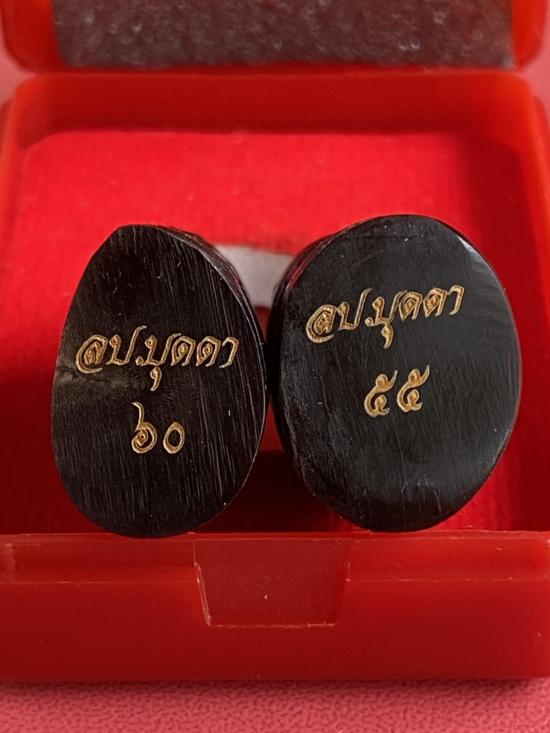 ลป.บุดดา
๖๐
ลป.บุดดา
๕๕